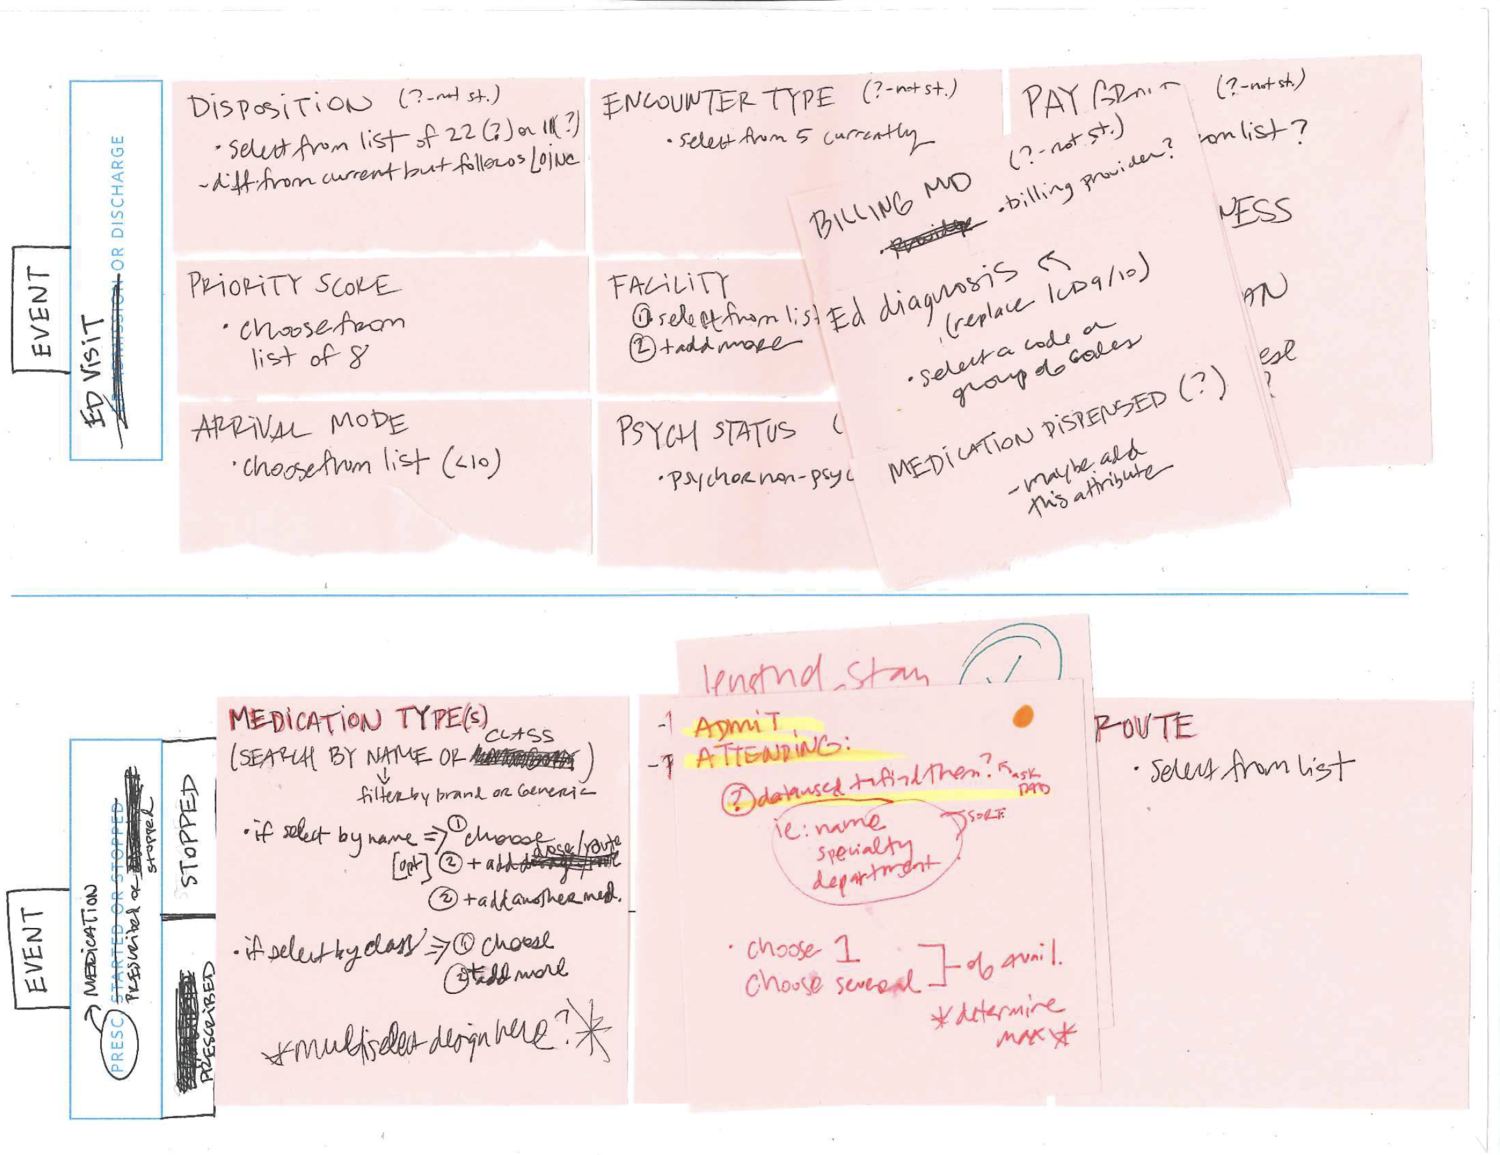 EVENT
ED VISIT
OR DISCHARGE
DISPOSITION (?-not st.)
• select from list of 22(?) or 11(?)
- diff. from current but follows LOINC
PRIORITY SCORE
• choose from
list of 8
ARRIVAL MODE
• choose from list (<10)
ENCOUNTER TYPE (?-not st.)
• select from 5 currently
FACILITY
① select from list
② + add more
PSYCH STATUS (
• psych or non-psyc
PAY (?-not st.)
om list?
NESS
AN
ese
?
BILLING MD (?-not st.)
• billing provider?
Ed diagnosis
(replace ICD9/10)
• select a code or
group of codes
MEDICATION DISPENSED (?)
- maybe add
this attribute
EVENT
MEDICATION
PRESC STARTED OR STOPPED
PRESCRIBED OR
STOPPED
STOPPED
PRESCRIBED
MEDICATION TYPE(S)
CLASS
(SEARCH BY NAME OR )
filter by brand or Generic
• if select by name ⇒ ① choose
[opt] ② + add dose/route
② + add another med.
• if select by class ⇒ ① choose
② + add more
* multiselect design here? *
length of stay
ADMIT
ATTENDING:
? data used to find them? ask
DAD
ie: name SORT
specialty
department
• choose 1
choose several of avail.
* determine
max *
ROUTE
• select from list